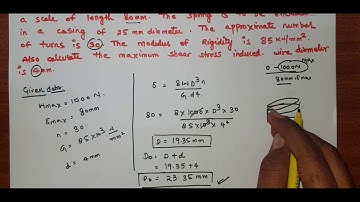 a scale of length 80mm. The spring is to be enclosed
in a casing of 25 mm diameter. The approximate number
of turns is 30. The modulus of Rigidity is 85 kN/mm².
Also calculate the maximum shear stress induced. wire diameter
is 4mm.
Given data:
Wmax = 1000 N
δmax = 80mm
n = 30
G = 85×10³ N/mm²
d = 4mm
δ = 8WD³n / G.d⁴
80 = 8×1000×D³×30 / 85×10³×4⁴
D = 19.35mm
D₀ = D+d
= 19.35+4
D₀ = 23.35 mm
0 - 1000N
80mm